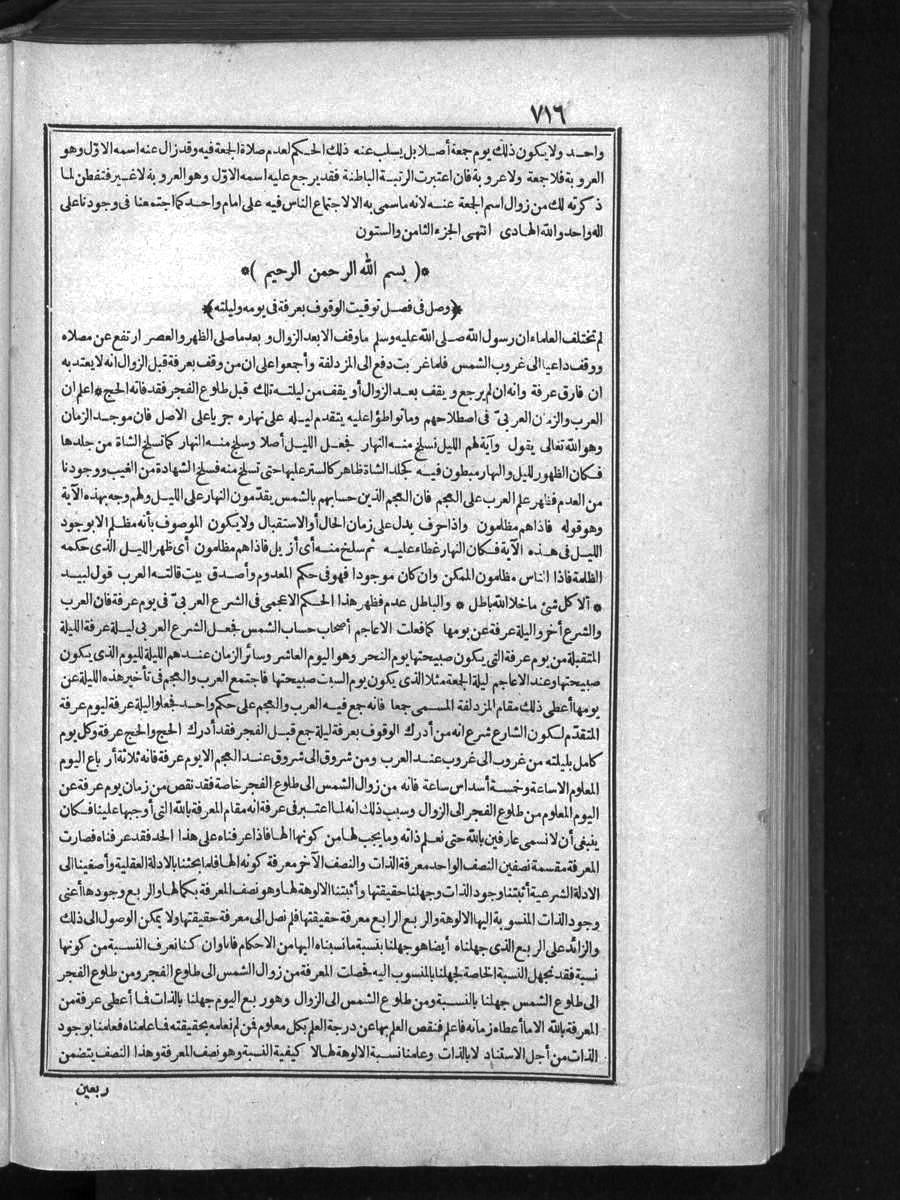 ٧١٦
واحد ولا يكون ذلك يوم جمعة أصلا بل يسلب عنه ذلك الحكم لعدم صلاة الجمعة فيه وقد زال عنه اسمه الاوّل وهو
العروبة فلا جمعة ولا عروبة فان اعتبرت الرتبة الباطنة فقد يرجع عليه اسمه الاوّل وهو العروبة لا غير فتفطن لما
ذكرته لك من زوال اسم الجمعة عنه لانه ما سمى به الا لاجتماع الناس فيه على امام واحد كما اجتمعنا فى وجودنا على
اله واحد والله الهادى انتهى الجزء الثامن والستون
*( بسم الله الرحمن الرحيم )*
﴿وصل فى فصل توقيت الوقوف بعرفة فى يومه وليلته﴾
لم تختلف العلماء ان رسول الله صلى الله عليه وسلم ما وقف الا بعد الزوال وبعد ما صلى الظهر والعصر ارتفع عن مصلاه
ووقف داعيا الى غروب الشمس فلما غربت دفع الى المزدلفة وأجمعوا على ان من وقف بعرفة قبل الزوال انه لا يعتد به
ان فارق عرفة وانه ان لم يرجع ويقف بعد الزوال أو يقف من ليلته تلك قبل طلوع الفجر فقد فاته الحج * اعلم ان
العرب والزمان العربىّ فى اصطلاحهم وما تواطؤا عليه يتقدم ليله على نهاره جريا على الاصل فان موجد الزمان
وهو الله تعالى يقول وآية لهم الليل نسلخ منه النهار فجعل الليل أصلا وسلخ منه النهار كما تسلخ الشاة من جلدها
فكان الظهور لليل والنهار مبطون فيه كجلد الشاة ظاهر كالستر عليها حتى تسلخ منه فسلخ الشهادة من الغيب ووجودنا
من العدم فظهر علم العرب على العجم فان العجم الذين حسابهم بالشمس يقدّمون النهار على الليل ولهم وجه بهذه الآية
وهو قوله فاذا هم مظلمون واذا حرف يدل على زمان الحال أو الاستقبال ولا يكون الموصوف بأنه مظلم الا بوجود
الليل فى هذه الآية فكان النهار غطاء عليه ثم سلخ منه أى أزيل فاذا هم مظلمون أى ظهر الليل الذى حكمه
الظلمة فاذا الناس مظلمون الممكن وان كان موجودا فهو فى حكم المعدوم وأصدق بيت قالته العرب قول لبيد
* ألا كل شئ ما خلا الله باطل * والباطل عدم فظهر هذا الحكم الاعجمى فى الشرع العربىّ فى يوم عرفة فان العرب
والشرع أخروا ليلة عرفة عن يومها كما فعلت الاعاجم أصحاب حساب الشمس فجعل الشرع العربى ليلة عرفة الليلة
المتقبلة من يوم عرفة التى يكون صبيحتها يوم النحر وهو اليوم العاشر وسائر الزمان عندهم الليلة لليوم الذى يكون
صبيحتها وعند الاعاجم ليلة الجمعة مثلا الذى يكون يوم السبت صبيحتها فاجتمع العرب والعجم فى تأخير هذه الليلة عن
يومها أعطى ذلك مقام المزدلفة المسمى جمعا فانه جمع فيه العرب والعجم على حكم واحد فجعلوا ليلة عرفة ليوم عرفة
المتقدّم لكون الشارع شرع انه من أدرك الوقوف بعرفة ليلة جمع قبل الفجر فقد أدرك الحج والحج عرفة وكل يوم
كامل بليلته من غروب الى غروب عند العرب ومن شروق الى شروق عند العجم الا يوم عرفة فانه ثلاثة أرباع اليوم
المعلوم الا ساعة وخمسة أسداس ساعة فانه من زوال الشمس الى طلوع الفجر خاصة فقد نقص من زمان يوم عرفة عن
اليوم المعلوم من طلوع الفجر الى الزوال وسبب ذلك انه لما اعتبر فى عرفة انه مقام المعرفة بالله التى أوجبها علينا فكان
ينبغى أن لا نسمى عارفين بالله حتى نعلم ذاته وما يجب لها من كونها الها فاذا عرفناه على هذا الحد فقد عرفناه فصارت
المعرفة مقسمة نصفين النصف الواحد معرفة الذات والنصف الآخر معرفة كونه الها فلما بحثنا بالادلة العقلية وأصغينا الى
الادلة الشرعية أثبتنا وجود الذات وجهلنا حقيقتها وأثبتنا الالوهة لها وهو نصف المعرفة بكمالها والربع وجودها أعنى
وجود الذات المنسوبة اليها الالوهة والربع الرابع معرفة حقيقتها فلم نصل الى معرفة حقيقتها ولا يمكن الوصول الى ذلك
والزائد على الربع الذى جهلناه أيضا هو جهلنا بنسبة ما نسبناه اليها من الاحكام فانا وان كنا نعرف النسبة من كونها
نسبة فقد نجهل النسبة الخاصة لجهلنا بالمنسوب اليه فحصلت المعرفة من زوال الشمس الى طلوع الفجر ومن طلوع الفجر
الى طلوع الشمس جهلنا بالنسبة ومن طلوع الشمس الى الزوال وهو ربع اليوم جهلنا بالذات فما أعطى عرفة من
المعرفة بالله الا ما أعطاه زمانه فاعلم فنقص العلم بها عن درجة العلم بكل معلوم فمن لم نعلمه بحقيقته فما علمناه فعلمنا بوجود
الذات من أجل الاستناد لا بالذات وعلمنا نسبة الالوهة لها لا كيفية النسبة وهو نصف المعرفة وهذا النصف يتضمن
ربعين